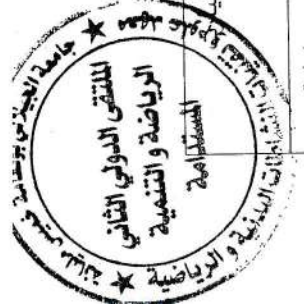 جامعة الجيلالي بونعامة خميس مليانة
معهد علوم وتقنيات النشاطات البدنية و الرياضية
الملتقى الدولي الثاني
الرياضة و التنمية
المستدامة